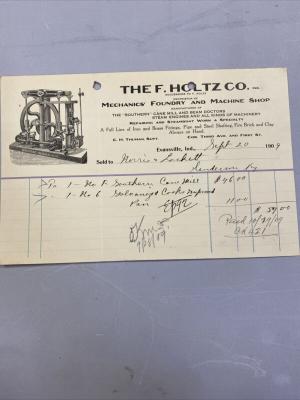 THE F. HOLTZ CO. INC.
SUCCESSORS TO F. HOLTZ
PROPRIETORS OF
MECHANICS' FOUNDRY AND MACHINE SHOP
MANUFACTURERS OF
THE "SOUTHERN" CANE MILL AND BEAM DOCTORS
STEAM ENGINES AND ALL KINDS OF MACHINERY
REPAIRING AND STEAMBOAT WORK A SPECIALTY
A Full Line of Iron and Brass Fittings, Pipe and Steel Shafting, Fire Brick and Clay
Always on Hand.
COR. THIRD AVE. AND FIRST ST.
Evansville, Ind., Sept 20 1909
Sold to Norris & Lockett
Henderson Ky
To 1 - No. F Southern Cane Mill $46.00
" 1 - No 6 Galvanized Cooks Improved
Pan 11 00
$ 57.00
Paid 10/29/09